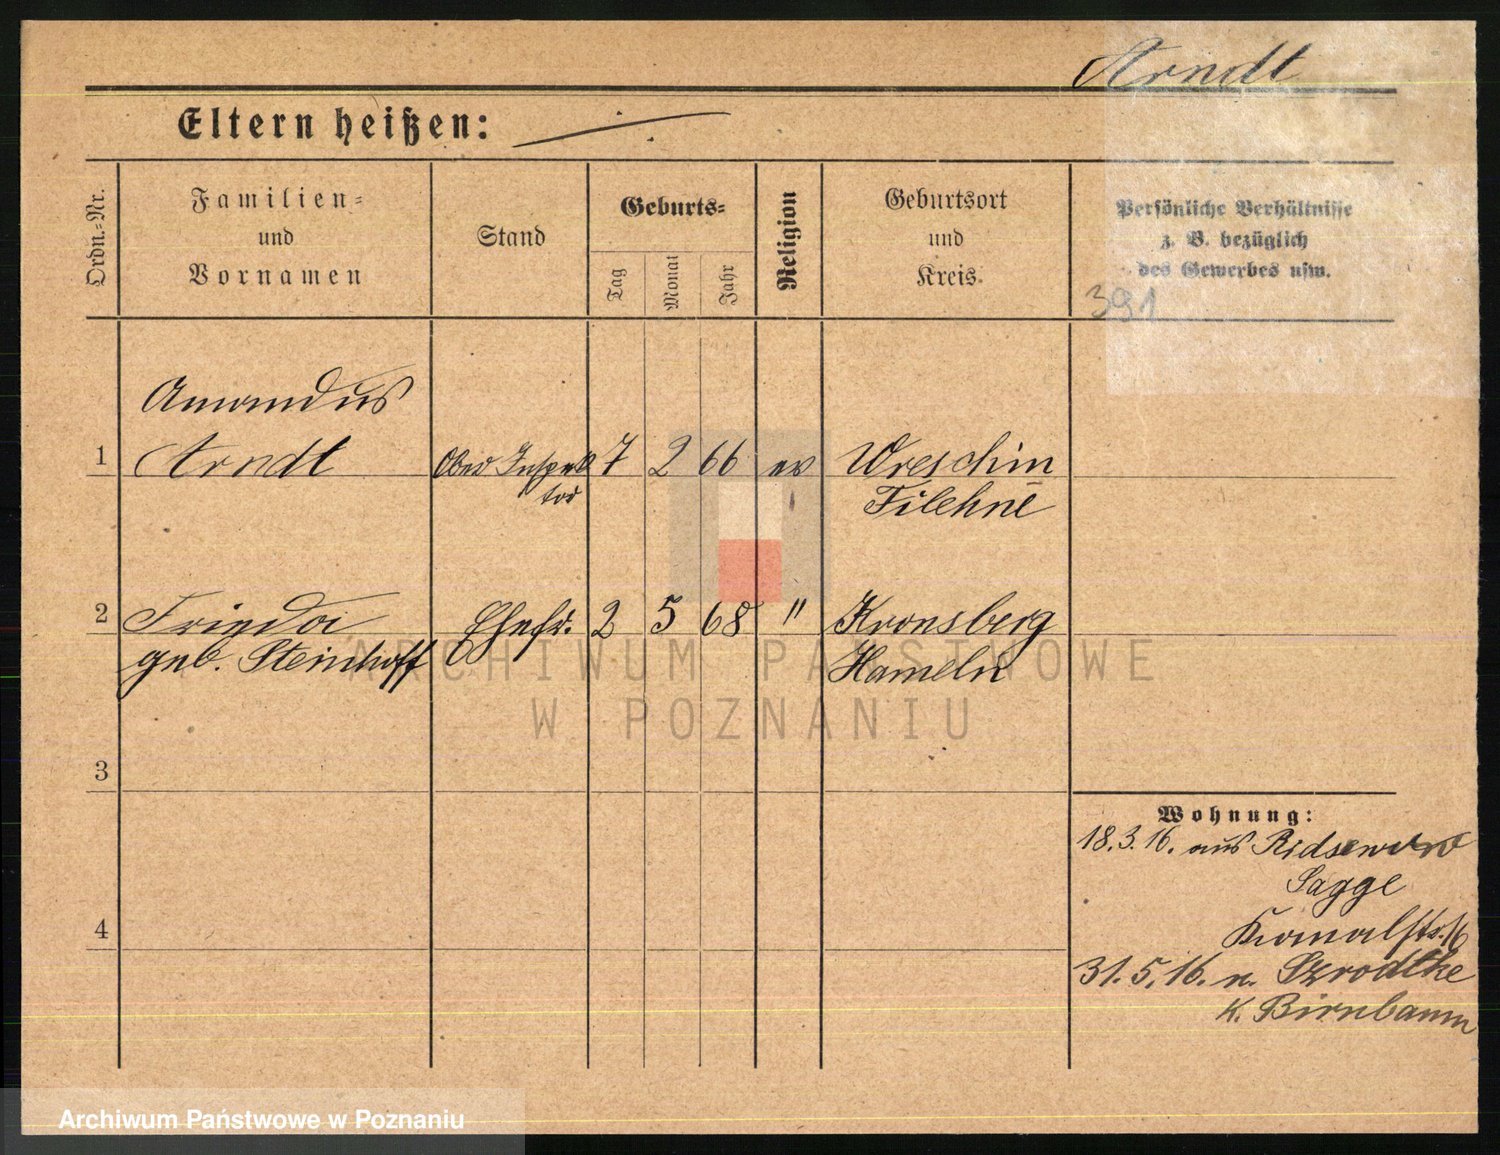 Arndt
Eltern heißen:
Ordn.-Nr.
Familien-
und
Vornamen
Stand
Geburts-
Tag
Monat
Jahr
Religion
Geburtsort
und
Kreis
Persönliche Verhältnisse
z. B. bezüglich
des Gewerbes usw.
391
Amandus
1 Arndt Ober Inspek 7 2 66 ev Wreschin
tor Filehne
2 Frieda Ehefr. 2 5 68 " Kronsberg
geb. Steinhoff Hameln
ARCHIWUM PAŃSTWOWE
W POZNANIU
3
Wohnung:
18.3.16. aus
Sagge
4
31.5.16. n. Szrodtke
K. Birnbaum
Archiwum Państwowe w Poznaniu